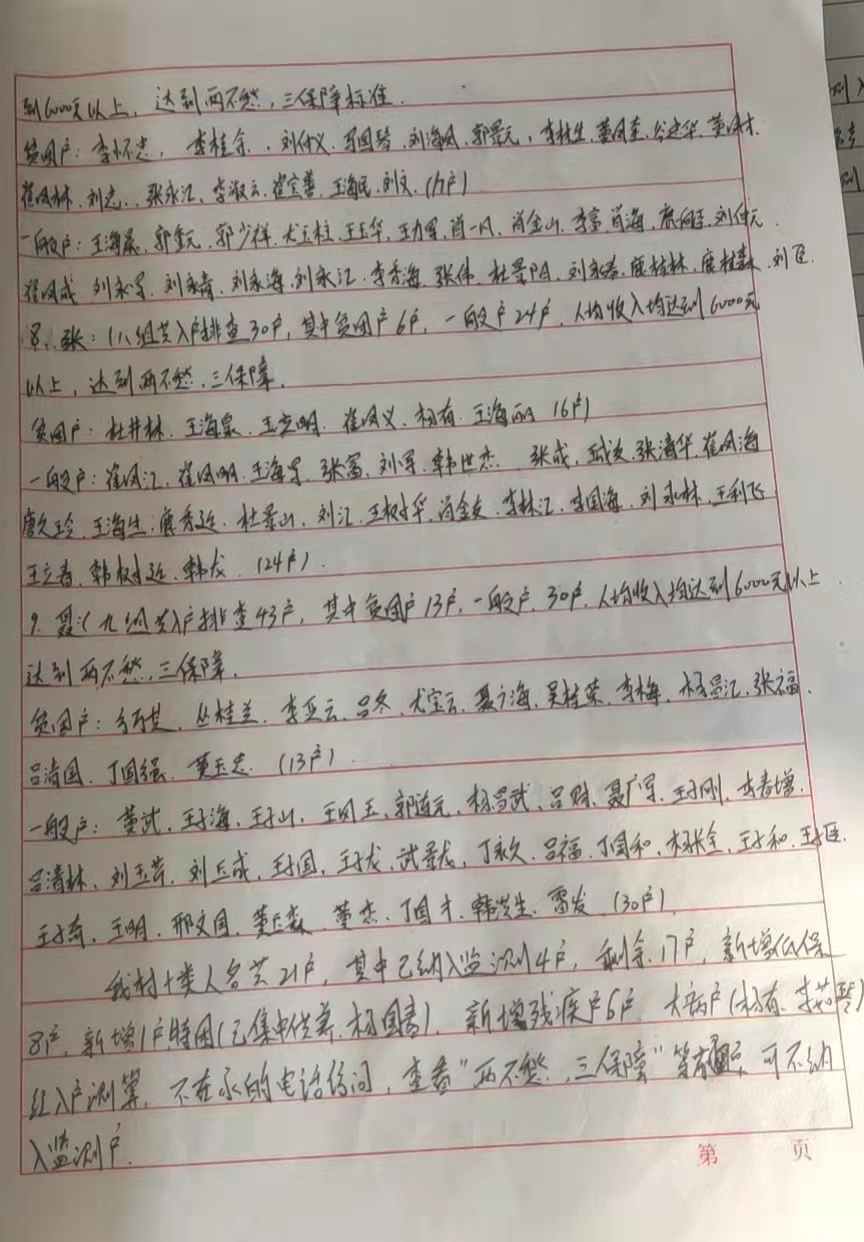 到6000元以上，达到两不愁，三保障标准.
贫困户：李怀志，李桂余，刘付义.司国琴.刘海凤.郭景元，李桂生.董凤奎.董凤林.
崔凤林.刘志.张永汇.李淑云.崔宝善.王海民.刘文.(17户)
一般户：王海泉.郭金元.郭少祥.尤玉柱.王玉华.王力军.肖一凡.肖金山.李富.肖海.刘付元.
崔凤成 刘永军.刘永青.刘永海.刘永汇.李秀海.张伟.杜景阳.刘永春.庞桂林.庞桂森.刘臣.
张：(八组共入户排查30户，其中贫困户6户，一般户24户，人均收入均达到6000元
以上，达到两不愁.三保障.
贫困户：杜井林.王海泉.王立明.崔凤义.杨有.王海丽 (6户)
一般户：崔凤汇.崔凤明.王海军.张富.刘军.韩世杰.张成.张清华.崔凤海
王海生.庞秀廷.杜景山.刘汇.王树华.肖金友.李林汇.李国海.刘永林.王利飞
王立春.韩树廷.韩龙.(24户).
9.聂:(九组共入户排查43户，其中贫困户13户，一般户.30户.人均收入均达到6000元以上
达到两不愁.三保障.
贫困户：丛桂兰.李亚云.吕冬.尤宝云.聂广海.吴桂荣.李梅.杨景汇.张福.
吕清国.丁国强.董玉志.(13户).
一般户：董武.王子海.王子山.王凤玉.郭连元.杨景武.吕财.聂广军.王子刚.李春增.
吕清林.刘玉芹.刘玉成.王子国.王子龙.武景龙.丁永久.吕福.丁国和.杨长全.王子和.王子臣.
王子奇.王明.邢文国.董玉森.董杰.丁国才.韩芝生.雷发.(30户).
我村十类人名共21户，其中已纳入监测4户，剩余.17户，新增低保
8户，新增1户特困(已集中供养.杨国春).新增残疾户6户.大病户(杨有.李艺琴)
经入户测算，不在家的电话询问，查看"两不愁.三保障"等 可不纳
入监测户.
第 页